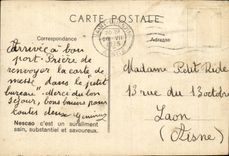 CARTE POSTALE
Correspondance
Arrivée à bon
port. Prière de
renvoyer la carte de
messe dans le petit
bureau. Merci du bon
séjour, bons baisers pour
toutes deux
Nescao c'est un suraliment
sain, substantiel et savoureux.
Madame Petit
rue du 13 octobre
Laon
(Aisne)